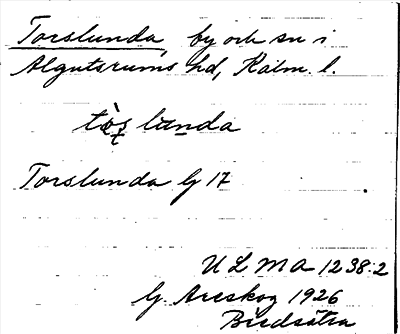 Torslunda, by och sn i
Algutsrums hd, Kalm. l.
tòṣlunda
Torslunda G 17
ULMA 1238:2
G. Areskog 1926
Bredsätra